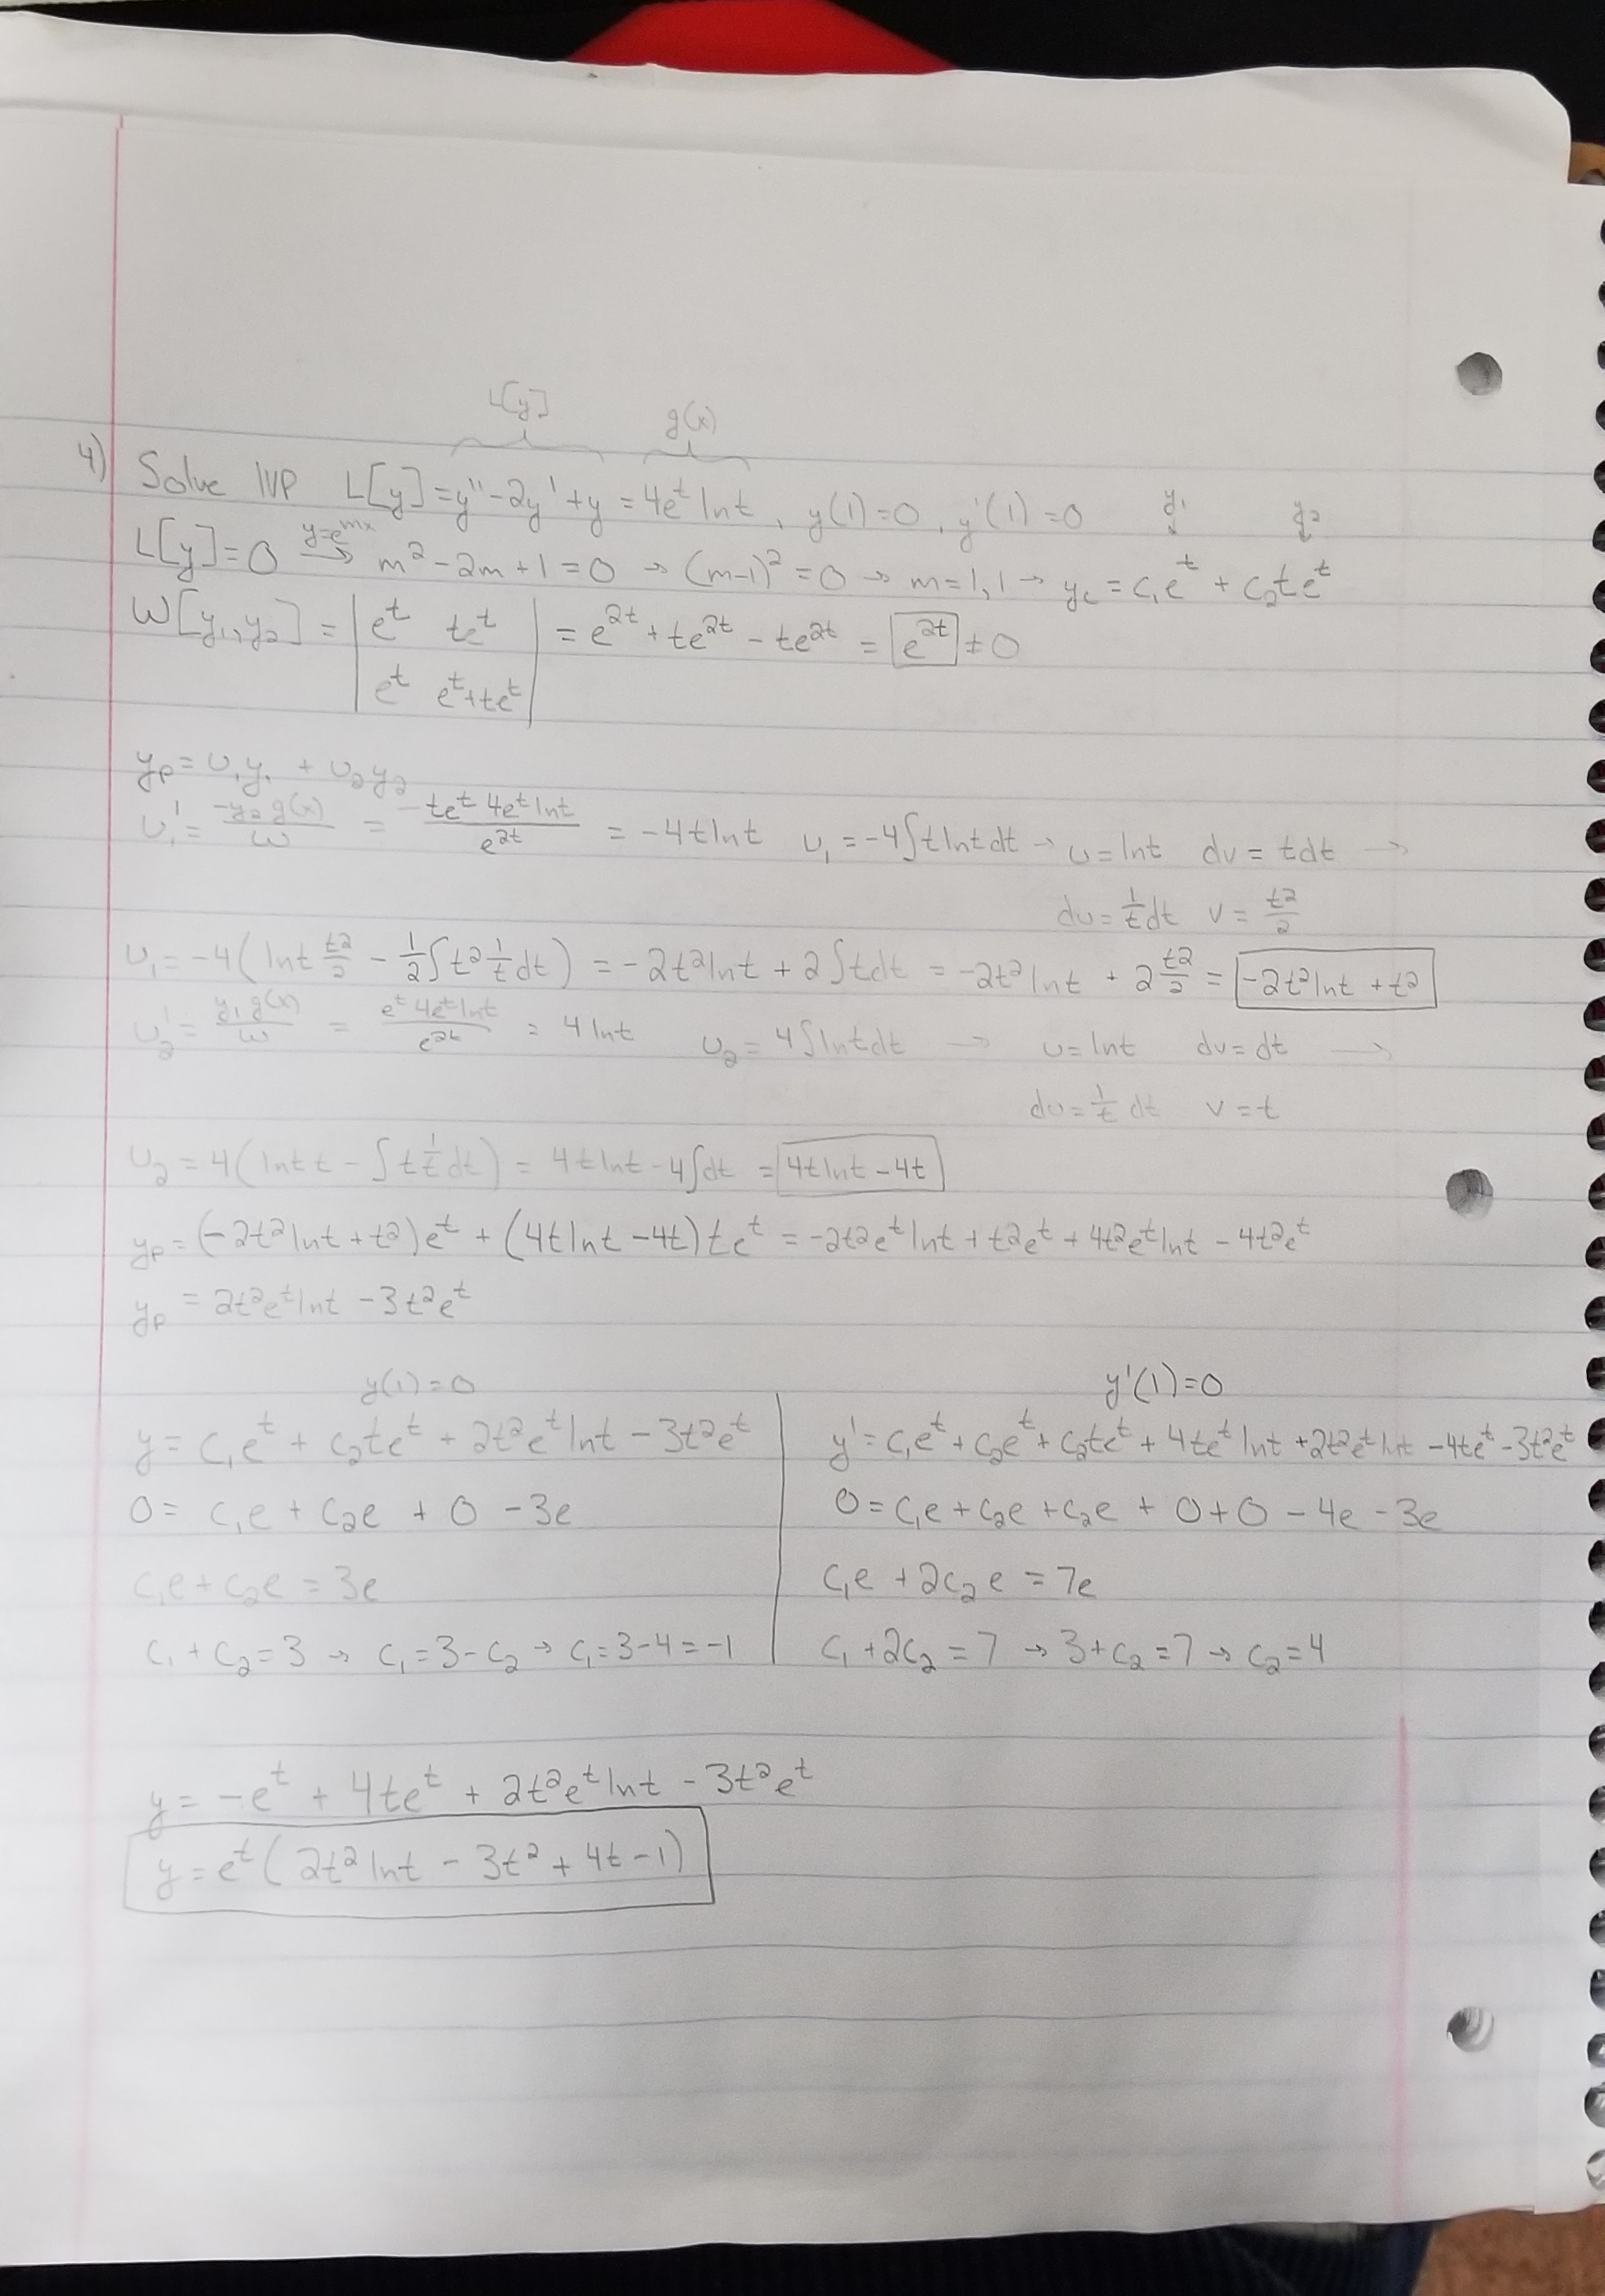 L[y] g(x)
4) Solve IVP L[y]=y''-2y'+y=4e^t lnt, y(1)=0, y'(1)=0 y₁ y₂
L[y]=0 y=e^mx → m²-2m+1=0 → (m-1)²=0 → m=1,1 → y_c = c₁e^t + c₂te^t
W[y₁,y₂] = | e^t te^t | = e^2t + te^2t - te^2t = e^2t ≠ 0
e^t e^t+te^t
y_p = u₁y₁ + u₂y₂
u₁' = -y₂g(x)/w = -te^t 4e^t lnt/e^2t = -4tlnt u₁ = -4∫tlntdt → u=lnt dv=tdt →
du=1/t dt v=t²/2
u₁ = -4(lnt t²/2 - 1/2∫t² 1/t dt) = -2t²lnt + 2∫tdt = -2t²lnt + 2 t²/2 = -2t²lnt + t²
u₂' = y₁g(x)/w = e^t 4e^t lnt/e^2t = 4lnt u₂ = 4∫lntdt → u=lnt dv=dt →
du=1/t dt v=t
u₂ = 4(lnt t - ∫t 1/t dt) = 4tlnt - 4∫dt = 4tlnt - 4t
y_p = (-2t²lnt + t²)e^t + (4tlnt - 4t)te^t = -2t²e^t lnt + t²e^t + 4t²e^t lnt - 4t²e^t
y_p = 2t²e^t lnt - 3t²e^t
y(1)=0 y'(1)=0
y = c₁e^t + c₂te^t + 2t²e^t lnt - 3t²e^t y' = c₁e^t + c₂e^t + c₂te^t + 4te^t lnt + 2t²e^t lnt - 4te^t - 3t²e^t
0 = c₁e + c₂e + 0 - 3e 0 = c₁e + c₂e + c₂e + 0 + 0 - 4e - 3e
c₁e + c₂e = 3e c₁e + 2c₂e = 7e
c₁ + c₂ = 3 → c₁ = 3 - c₂ → c₁ = 3-4 = -1 c₁ + 2c₂ = 7 → 3 + c₂ = 7 → c₂ = 4
y = -e^t + 4te^t + 2t²e^t lnt - 3t²e^t
y = e^t(2t² lnt - 3t² + 4t - 1)